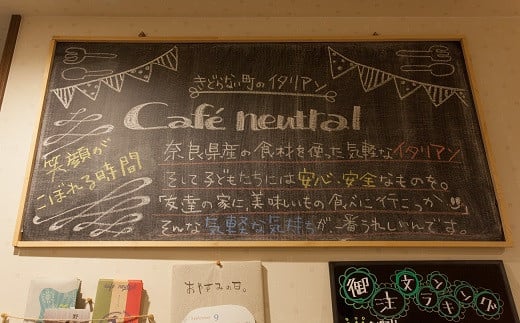 きどらない町のイタリアン
Café neutral
笑顔が
こぼれる時間
奈良県産の食材を使った気軽なイタリアン
そして子どもたちには安心、安全なものを。
「友達の家に、美味しいもの食べに行こっか」
そんな気軽な気持ちが、一番うれしいんです。
おやすみの日。
9
御注文
ランキング